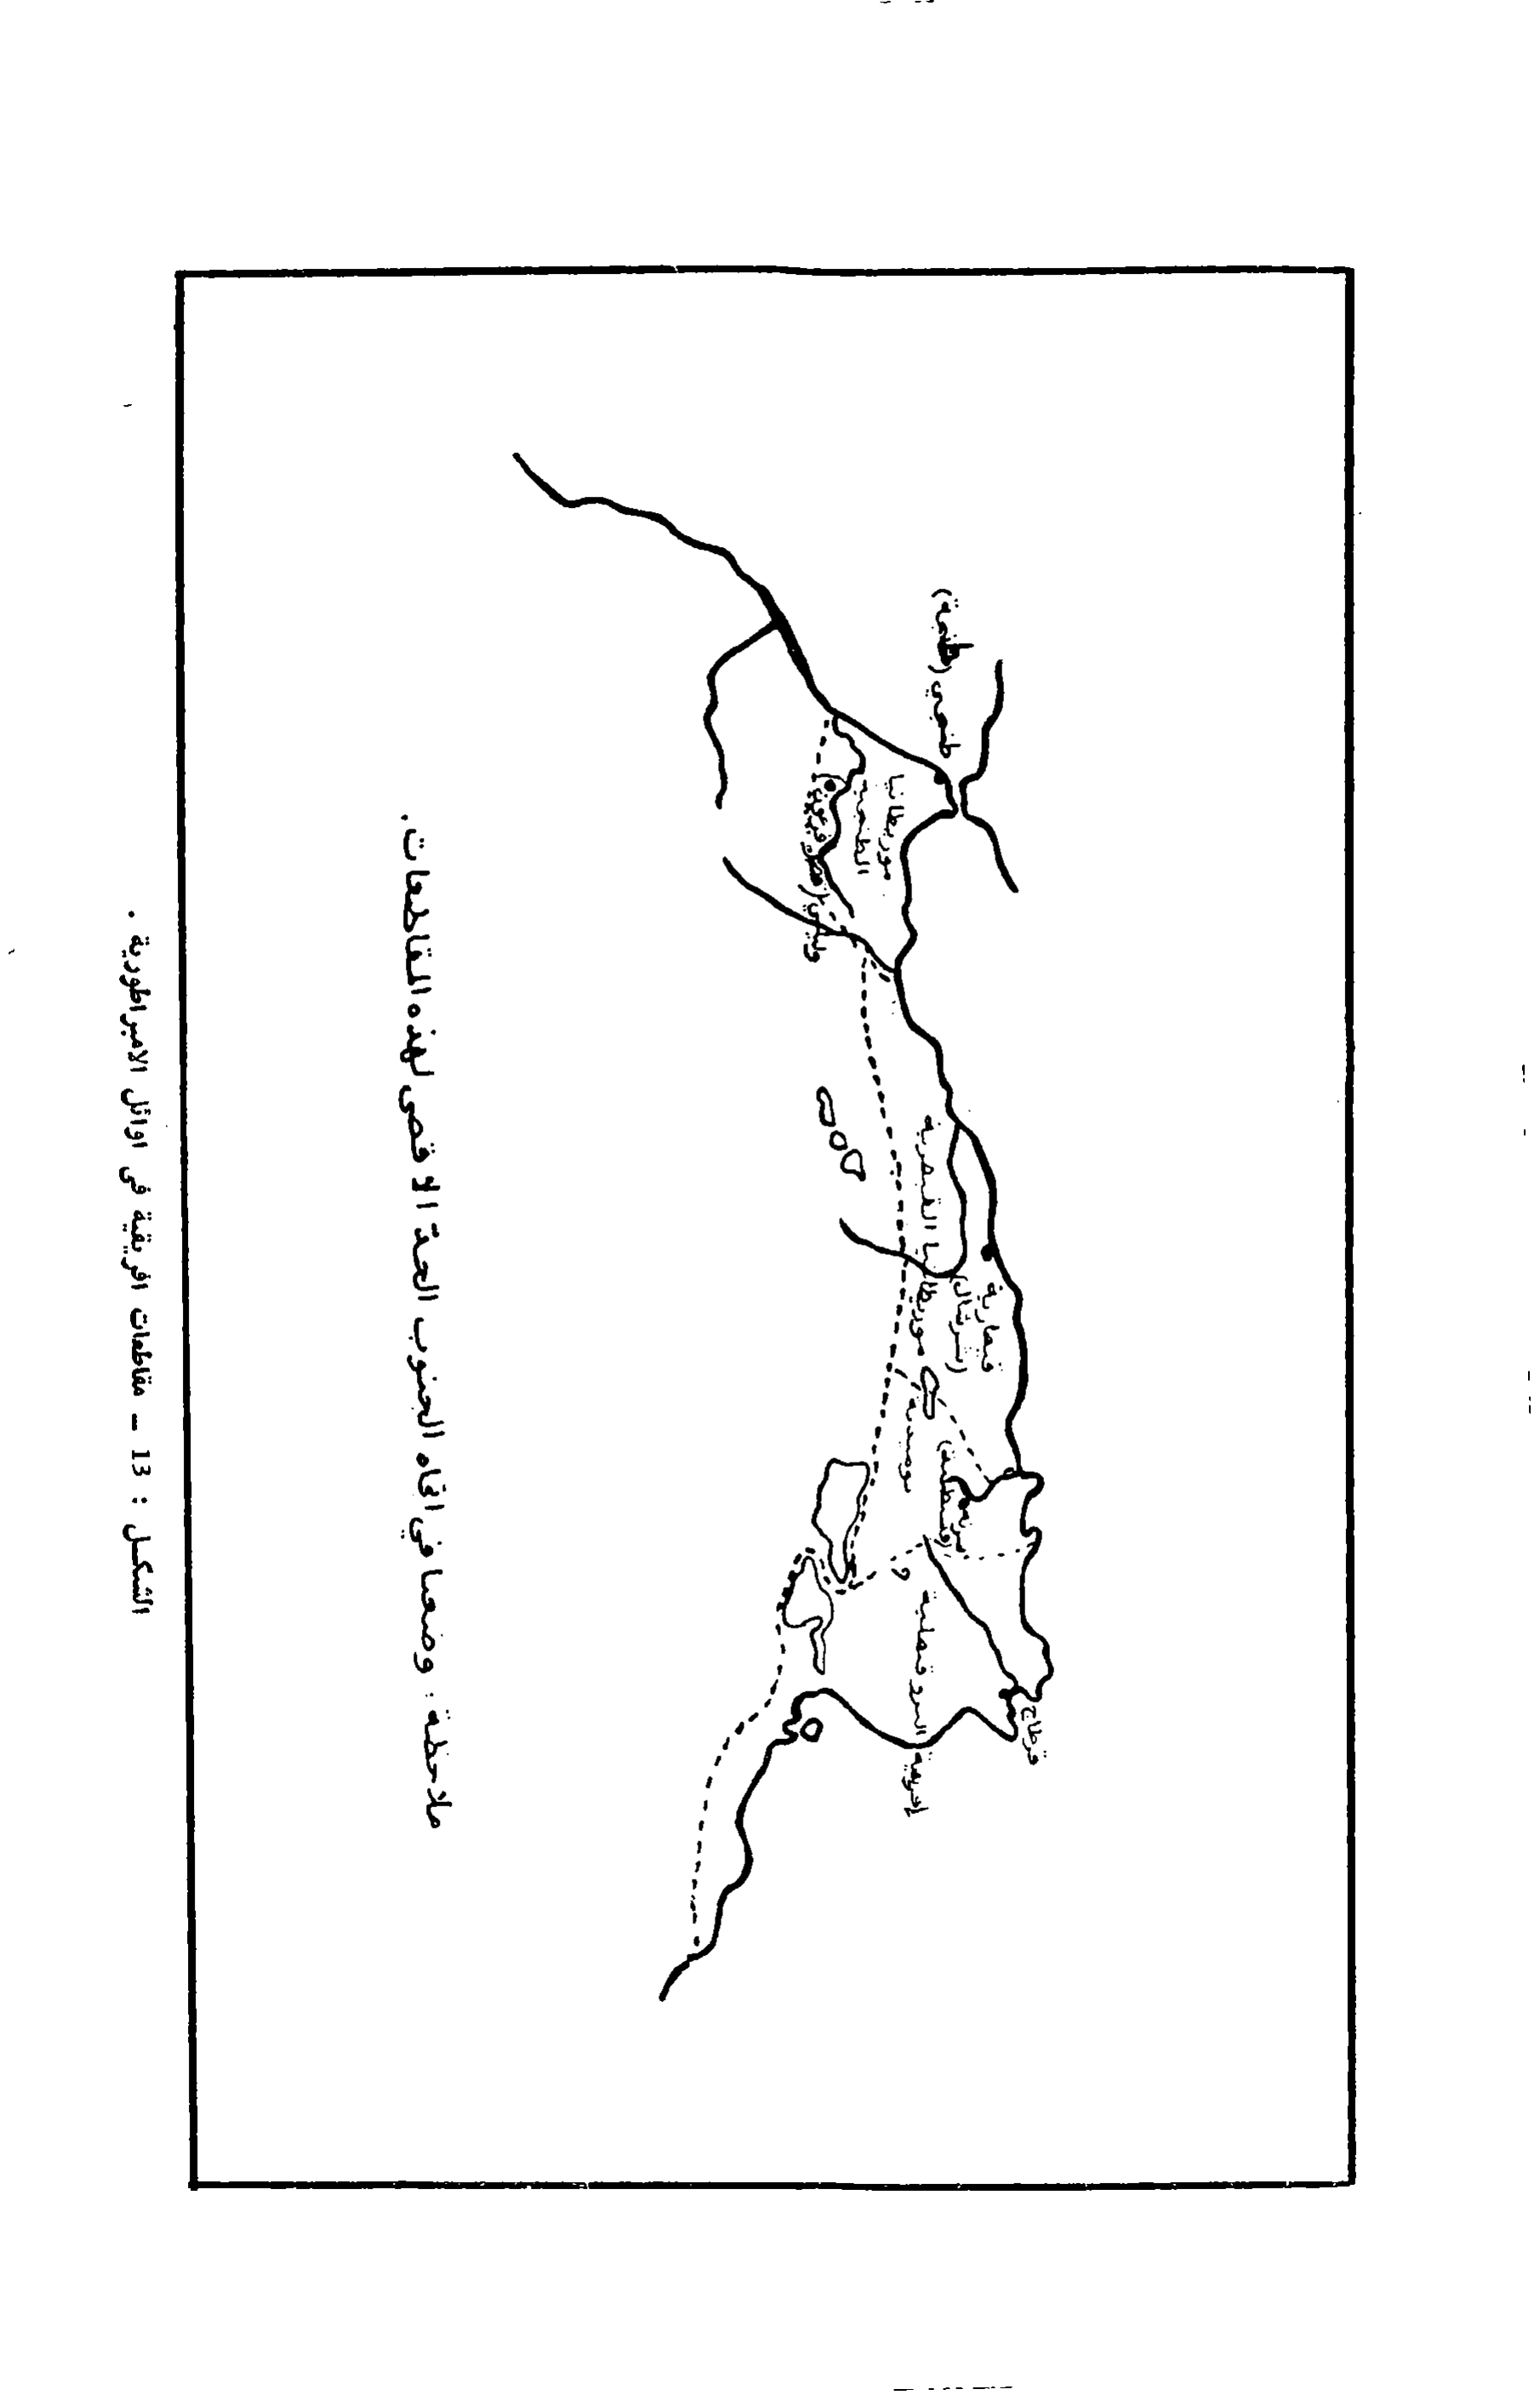 طنجي (طنجة)
موريطانيا
الطنجية
وليلي (قصر فرعون)
موريطانيا القيصرية
قيصارية
(شرشال)
نوميديا
(قسنطينة)
إفريقية البروقنصلية
قرطاج
ملاحظة : وضعنا في اتجاه الجنوب الحد الاقصى لهذه المقاطعات .
الشكل : 13 ــ مقاطعات افريقية في اوائل الامبراطورية .